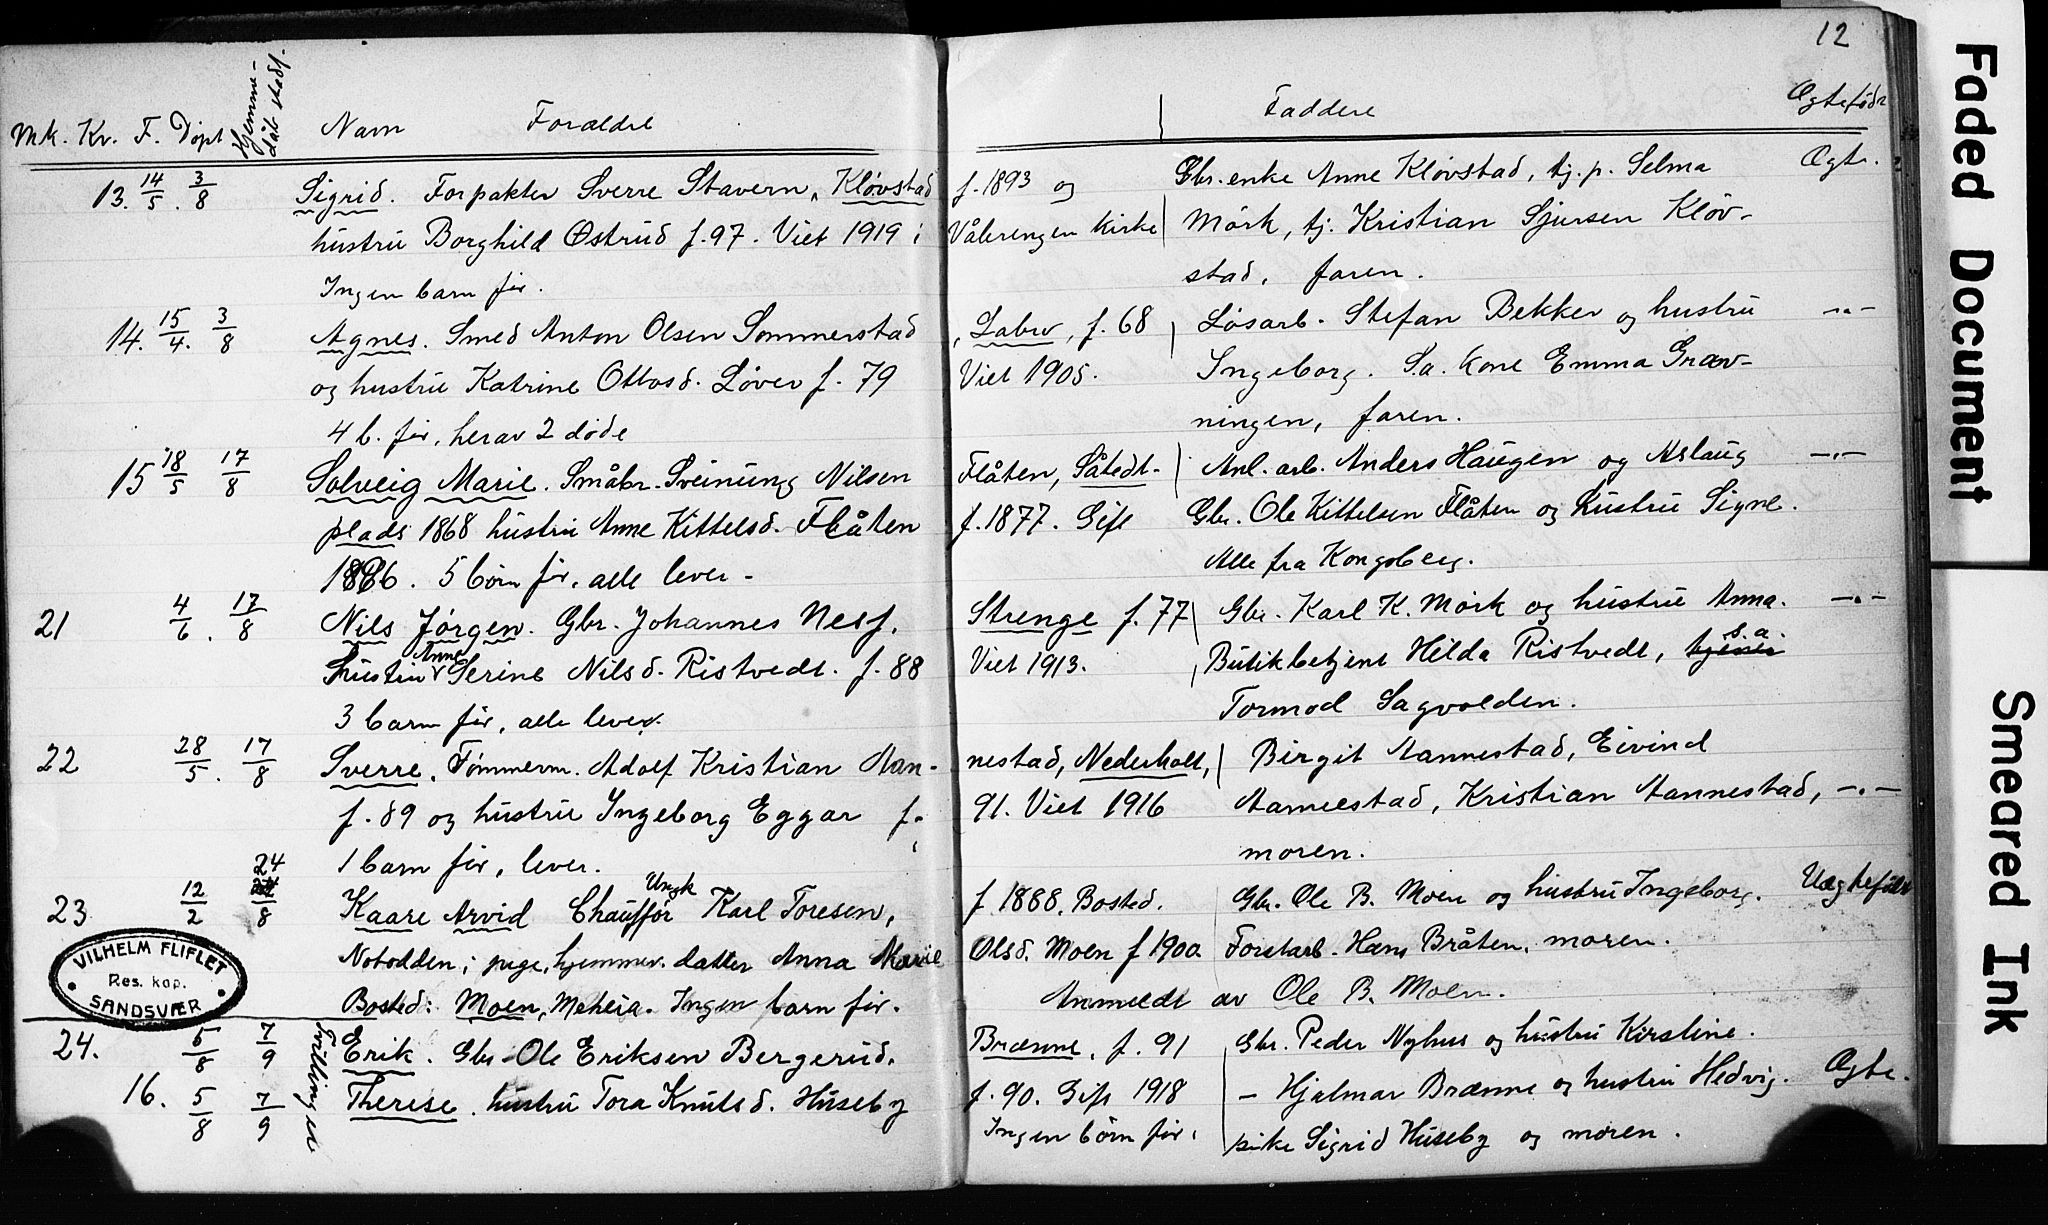 12
Mk. Kv. F. Døpt Hjemme- Navn Forældre Faddere Ægtefødt
dåb stadf.
13. 14/5 . 3/8 Sigrid. Forpakter Sverre Stavern, Kløvstad f. 1893 og Gbr. enke Anne Kløvstad, tj. p. Selma Ægte.
hustru Borghild Østrud f. 97. Viet 1919 i Vålerengen kirke Mørk, tj. Kristian Sjursen Kløv-
Ingen barn før. stad, faren.
14. 15/4. 3/8 Agnes. Smed Anton Olsen Sommerstad, Labro, f. 68 Løsarb. Stefan Bekker og hustru -"-
og hustru Katrine Ottosd. Løver f. 79 Viet 1905. Ingeborg. S.a. kone Emma Græv-
4 b. før, herav 2 døde ningen, faren.
15 18/5 17/8 Solveig Marie. Småbr. Sveinung Nilsen Flåten, Såtedt- Anl. arb. Anders Haugen og Aslaug -"-
plads 1868 hustru Anne Kittelsd. Flåten f. 1877. Gift Gbr. Ole Kittelsen Flåten og hustru Signe.
1886. 5 børn før, alle lever. Alle fra Kongsberg.
21 4/6. 17/8 Nils Jørgen. Gbr. Johannes Nesf. Strenge f. 77 Gbr. Karl K. Mørk og hustru Anna. -"-
hustru Anne Serine Nilsd. Ristvedt. f. 88 Viet 1913. Butikbetjent Hilda Ristvedt, s.a.
3 barn før, alle lever. Tormod Sagvolden.
22 28/5. 17/8 Sverre. Tømmerm. Adolf Kristian Aan- nestad, Nederholt, Birgit Aannestad, Eivind
f. 89 og hustru Ingeborg Eggar f. 91. Viet 1916 Aannestad, Kristian Aannestad, -"-
1 barn før, lever. moren.
23 12/2 24/8 Kaare Arvid Chauffør Ungk Karl Toresen, f. 1888. Bosted. Gbr. Ole B. Moen og hustru Ingeborg. Uægtefødt
Notodden; pige, hjemmev. datter Anna Marie Olsd. Moen f 1900. Forstarb. Hans Bråten, moren.
Bosted: Moen, Meheia. Ingen barn før. Anmeldt av Ole B. Moen.
VILHELM FLIFLET
Res. kap.
SANDSVÆR
24. 5/8 7/9 Tvillinger Erik. Gbr. Ole Eriksen Bergerud. Brænne, f. 91 Gbr. Peder Nyhus og hustru Kirstine.
16. 5/8 7/9 Therese. hustru Tora Knutsd. Huseby f. 90. Gift 1918 - Hjalmar Brænne og hustru Hedvig. Ægte.
Ingen børn før. pike Sigrid Huseby og moren.
Faded Document
Smeared Ink